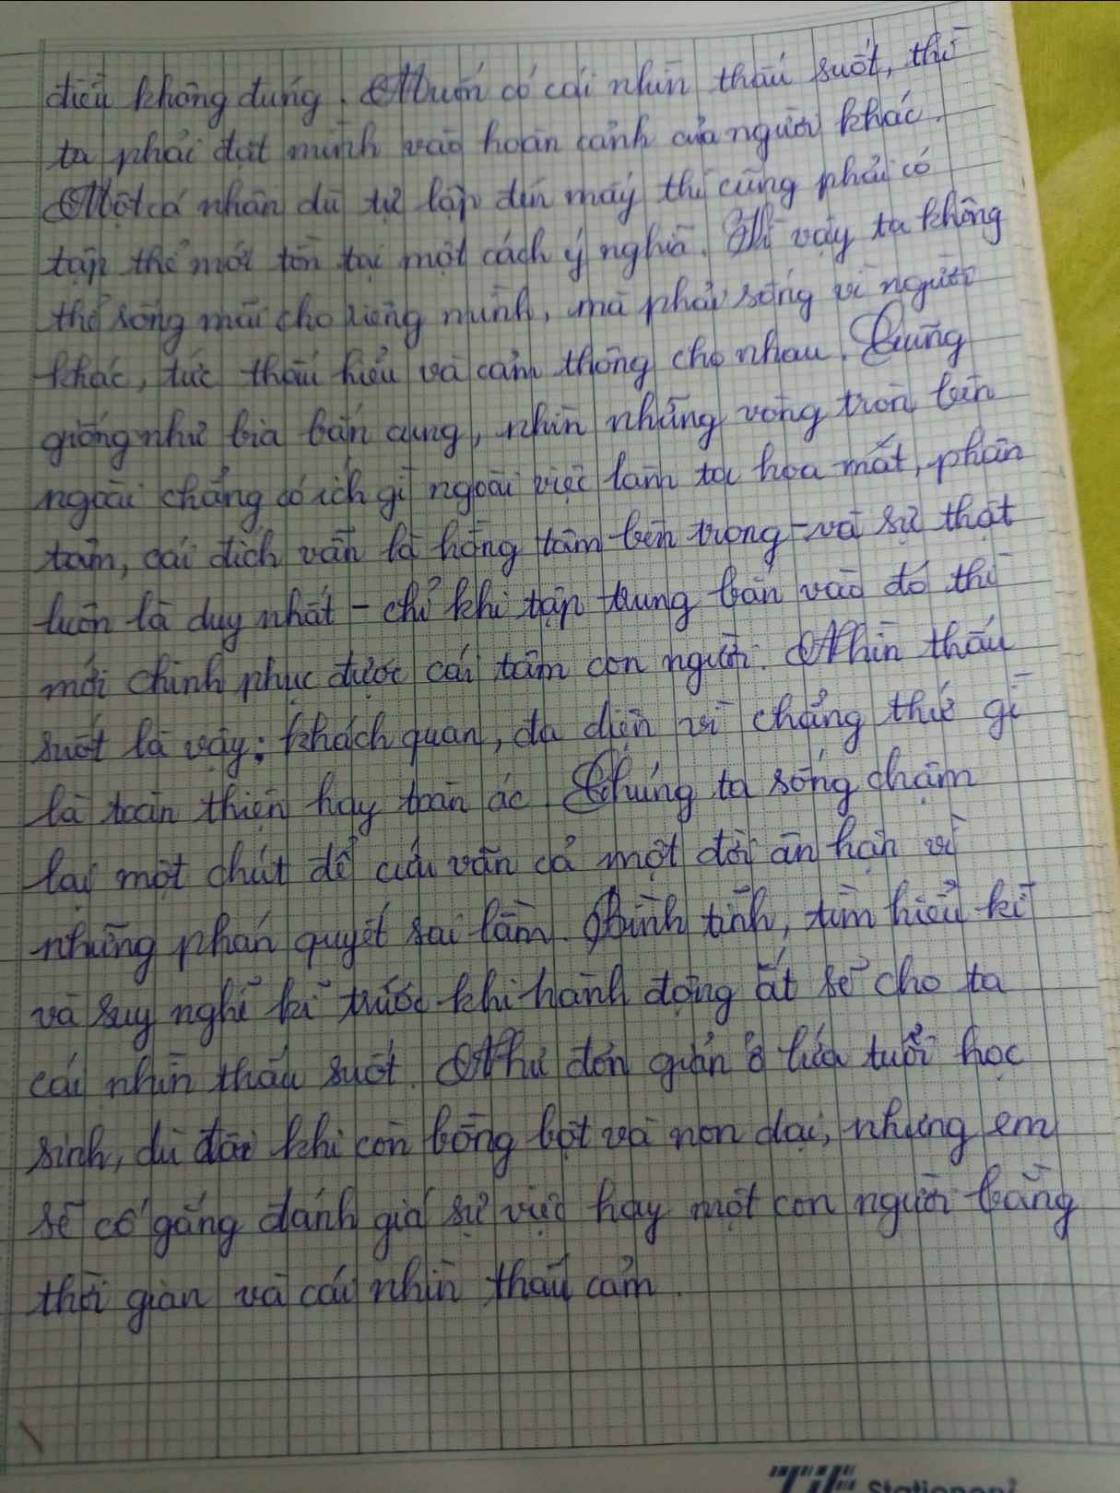 điều không đúng. Muốn có cái nhìn thấu suốt, thì
ta phải đặt mình vào hoàn cảnh của người khác.
Một cá nhân dù tự lập đến mấy thì cũng phải có
tập thể mới tồn tại một cách ý nghĩa. Vì vậy ta không
thể sống mãi cho riêng mình, mà phải sống vì người
khác, tức thấu hiểu và cảm thông cho nhau. Cũng
giống như bia bắn cung, nhìn những vòng tròn bên
ngoài chẳng có ích gì ngoài việc làm ta hoa mắt, phân
tâm, cái đích vẫn là hồng tâm bên trong - và sự thật
luôn là duy nhất - chỉ khi tập trung bắn vào đó thì
mới chinh phục được cái tâm con người. Nhìn thấu
suốt là vậy: khách quan, đa diện vì chẳng thứ gì
là toàn thiện hay toàn ác. Chúng ta sống chậm
lại một chút để cứu vãn cả một đời ân hận vì
những phán quyết sai lầm. Bình tĩnh, tìm hiểu kĩ
và suy nghĩ kĩ trước khi hành động ắt sẽ cho ta
cái nhìn thấu suốt. Như đơn giản ở lứa tuổi học
sinh, dù đôi khi còn bồng bột và non dại, nhưng em
sẽ cố gắng đánh giá sự việc hay một con người bằng
thời gian và cái nhìn thấu cảm.
Stationery